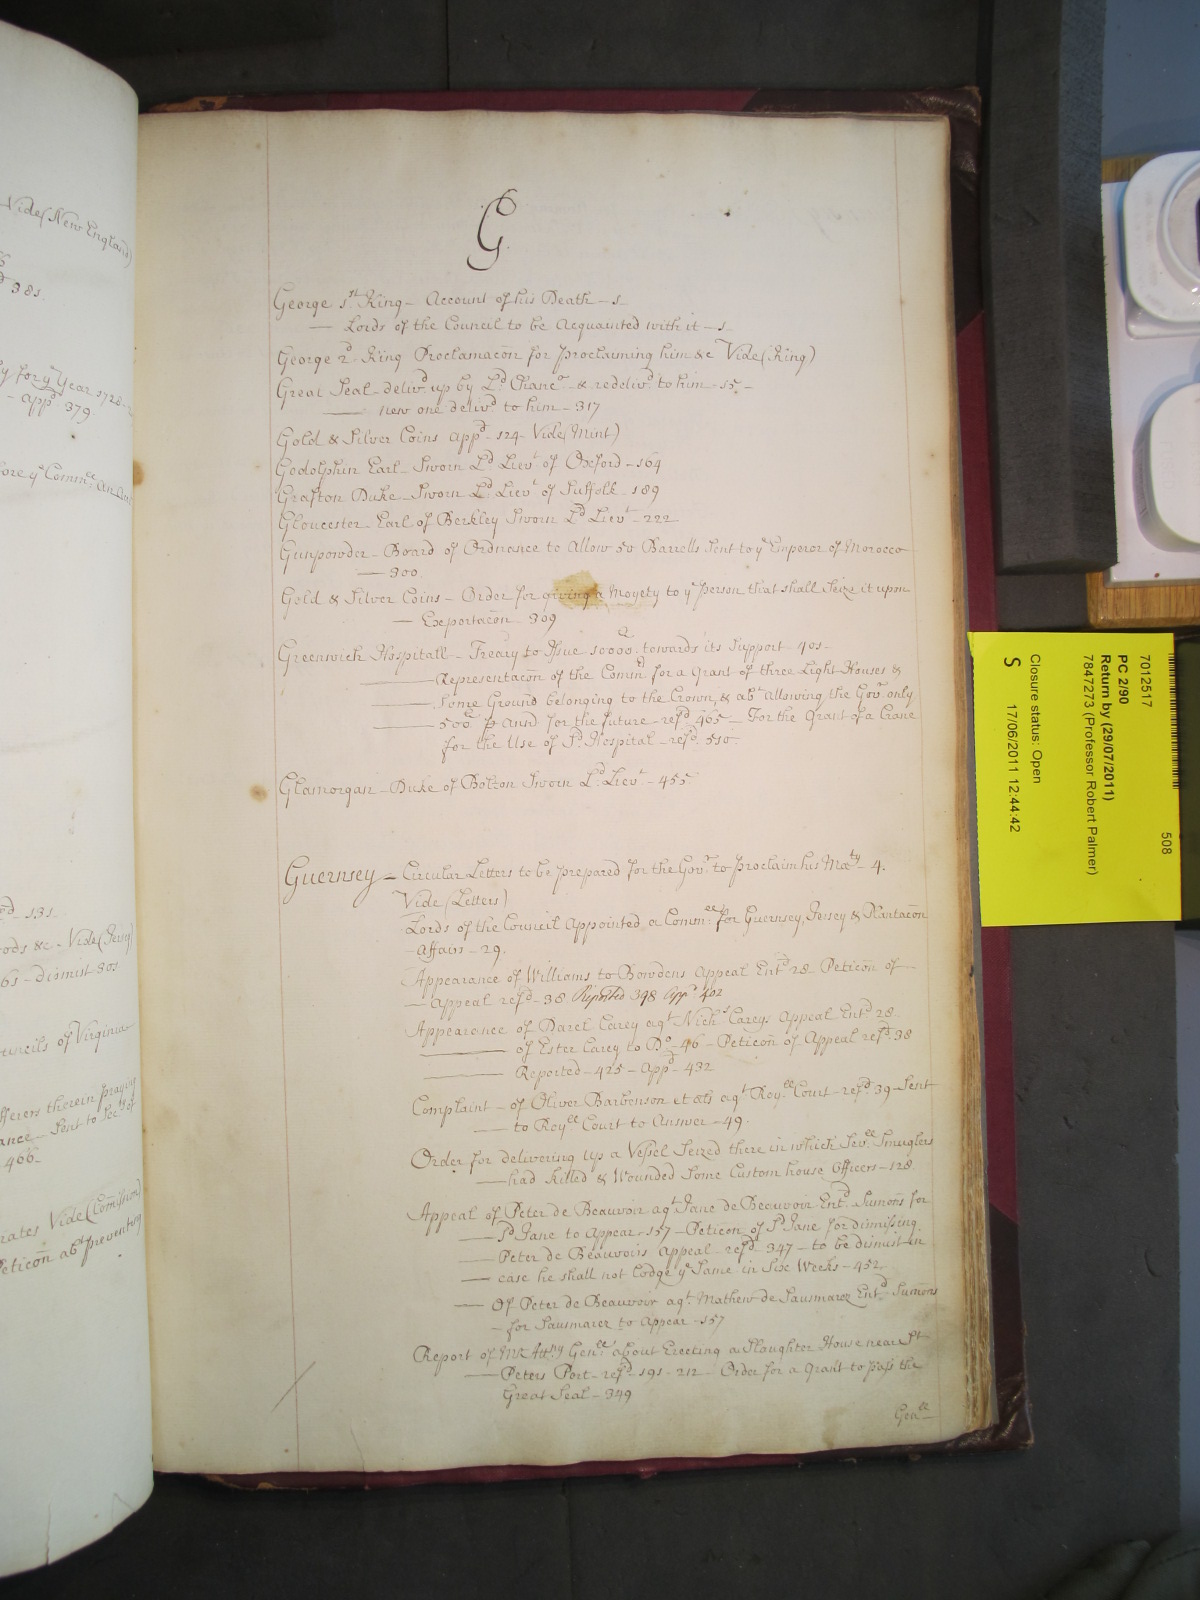 Vide (New England)
381.
y for yᵉ Year 1728
- appᵈ 379
fore yᵉ Commᵉᵉ
131
ods &c - Vide (Jersey)
- dismist 303
uncils of Virginia
fferers therein praying
ance - Sent to
466
rates Vide (Comission)
Peticoñ abᵗ preventing
G
George 1ˢᵗ King - Account of his Death - 1
— Lords of the Council to be Acquainted with it - 1
George 2ᵈ King Proclamacoñ for proclaiming him &c Vide (King)
Great Seal - delivᵈ up by Lᵈ Chancʳ & redelivᵈ to him - 15 -
— new one delivᵈ to him - 317
Gold & Silver Coins appᵈ - 124 - Vide (Mint)
Godolphin Earl - Sworn Lᵈ Lievᵗ of Oxford - 164
Grafton Duke - Sworn Lᵈ Lievᵗ of Suffolk - 189
Gloucester - Earl of Berkley Sworn Lᵈ Lievᵗ - 222
Gunpowder - Board of Ordnance to Allow 50 Barrells Sent to yᵉ Emperor of Morocco
— 300.
Gold & Silver Coins - Order for giving a Moyety to yᵉ person that shall Seize it upon
— Exportacoñ 309
Greenwich Hospitall - Treary to Issue 10000ˡ towards its Support - 401 -
— Representacoñ of the Commʳˢ for a Grant of three Light Houses &
— Some Ground belonging to the Crown & abᵗ Allowing the Govʳ only
— 500ˡ p Annũ for the future - refᵈ 465 - For the Grant of a Crane
for the Use of Sᵈ Hospital - refᵈ 510
Glamorgan - Duke of Bolton Sworn Lᵈ Lievᵗ - 455
Guernsey - Circular Letters to be prepared for the Govʳ to proclaim his Maᵗʸ - 4.
Vide (Letters)
Lords of the Council Appointed a Commᵉᵉ for Guernsey, Jersey & Plantacoñ
- Affairs - 29.
Appearance of Williams to Bowdens Appeal Entᵈ 28 Peticoñ of
— Appeal refᵈ - 38 Reported 398 appᵈ 402
Appearance of Darel Carey agᵗ Nichˢ Careys Appeal Entᵈ 28.
— of Ester Carey to Dᵒ - 46 - Peticoñ of Appeal refᵈ 38
— Reported - 425 - Appᵈ - 432
Complaint - of Oliver Barbenson et als agᵗ Royˡˡ Court - refᵈ 39 - Sent
— to Royˡˡ Court to Answer - 49.
Order for delivering up a Vessel Seized there in which Sevˡˡ Smuglers
— had Killed & Wounded Some Custom house Officers - 128
Appeal of Peter de Beauvoir agᵗ Jane de Beauvoir Entᵈ Sumons for
— Sᵈ Jane to Appear - 157 - Peticoñ of Sᵈ Jane for dismissing
— Peter de Beauvoirs Appeal - refᵈ 347 - to be dismist in
— case he shall not Lodge yᵉ Same in Six Weeks - 452
— Of Peter de Beauvoir agᵗ Mathew de Sausmarez Entᵈ Sumons
- for Sausmarez to Appear - 157
Report of Mr Attʳⁿʸ Genˡˡ about Erecting a Slaughter House near Sᵗ
— Peters Port - refᵈ 191 - 212 - Order for a Grant to pass the
Great Seal - 349
Genˡˡ
7012517
508
PC 2/90
Return by (29/07/2011)
7847273 (Professor Robert Palmer)
Closure status: Open
S 17/06/2011 12:44:42